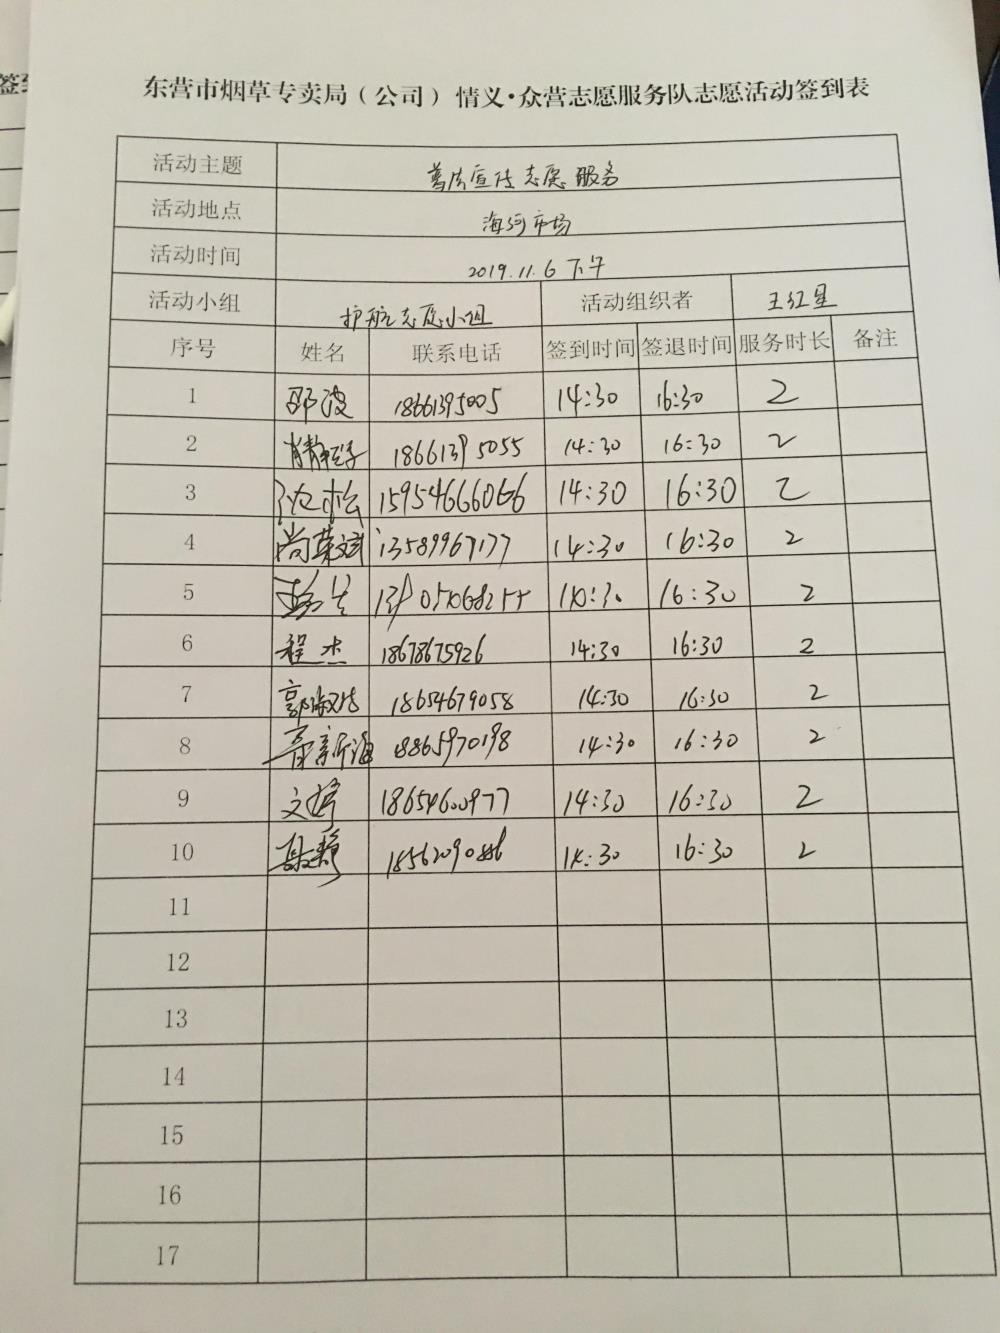 东营市烟草专卖局（公司）情义·众营志愿服务队志愿活动签到表
活动主题 普法宣传志愿服务
活动地点 海河市场
活动时间 2019.11.6 下午
活动小组 护航志愿小组 活动组织者 王红星
序号 姓名 联系电话 签到时间 签退时间 服务时长 备注
1 邵波 18661395005 14:30 16:30 2
2 18661395055 14:30 16:30 2
3 15954666066 14:30 16:30 2
4 尚荣斌 13589967177 14:30 16:30 2
5 14:30 16:30 2
6 程杰 18678675926 14:30 16:30 2
7 郭淑洁 18654679058 14:30 16:30 2
8 18865970198 14:30 16:30 2
9 文婷 18654600977 14:30 16:30 2
10 14:30 16:30 2
11
12
13
14
15
16
17
签到